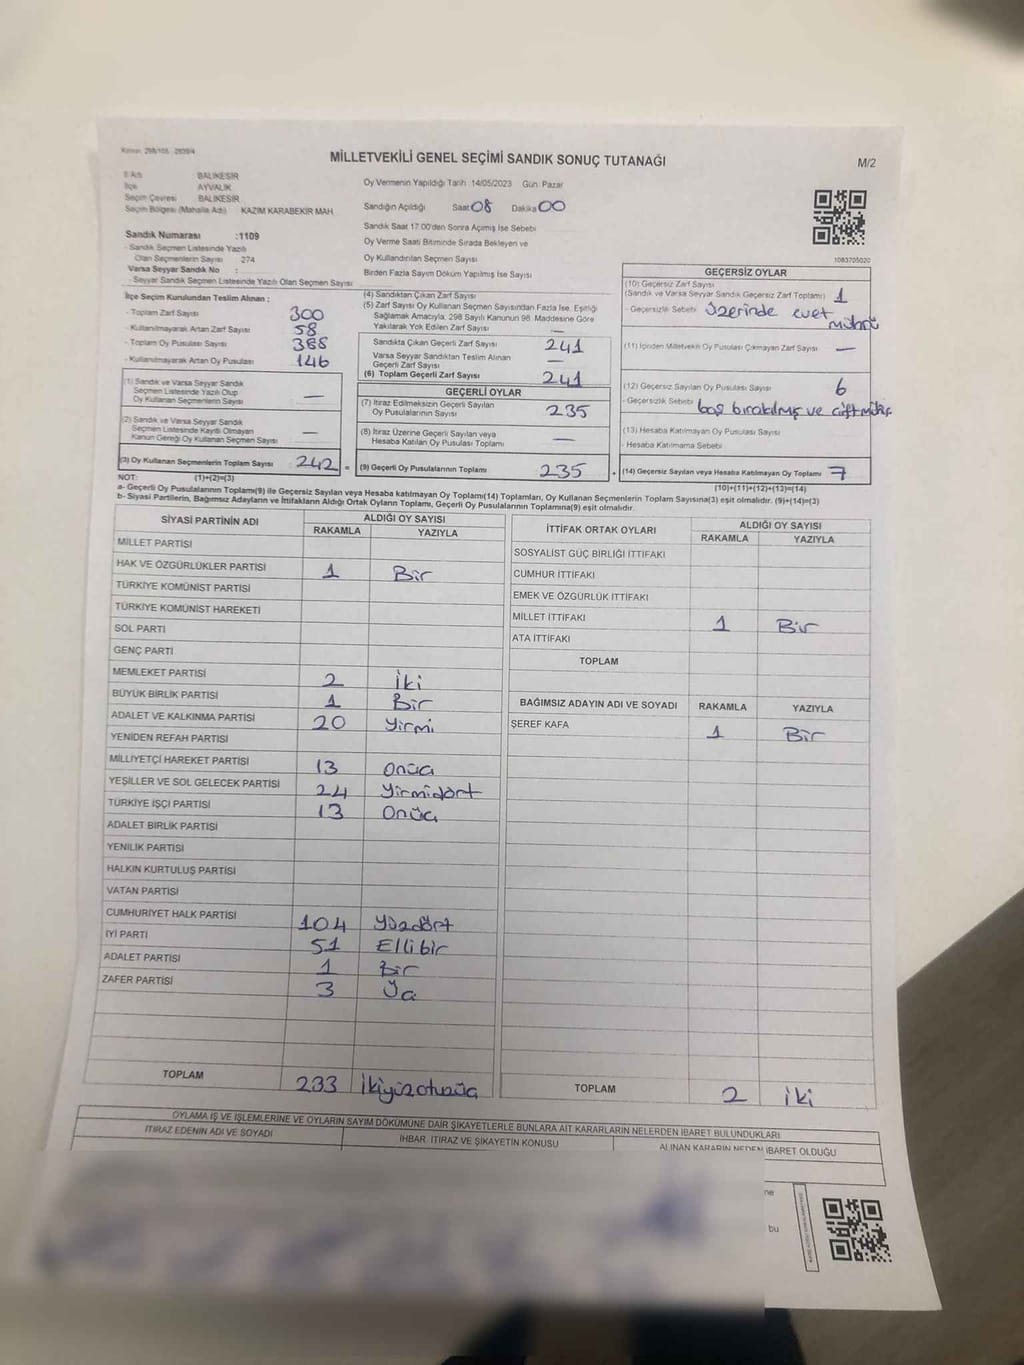 MİLLETVEKİLİ GENEL SEÇİMİ SANDIK SONUÇ TUTANAĞI
M/2
İl Adı BALIKESİR
İlçe AYVALIK
Seçim Çevresi BALIKESİR
Seçim Bölgesi (Mahalle Adı) KAZIM KARABEKİR MAH.
Sandık Numarası :1109
- Sandık Seçmen Listesinde Yazılı
Olan Seçmenlerin Sayısı 274
Varsa Seyyar Sandık No :
- Seyyar Sandık Seçmen Listesinde Yazılı Olan Seçmen Sayısı :
Oy Vermenin Yapıldığı Tarih 14/05/2023 Gün Pazar
Sandığın Açıldığı Saat 08 Dakika 00
Sandık Saat 17:00'den Sonra Açımış İse Sebebi
Oy Verme Saati Bitiminde Sırada Bekleyen ve
Oy Kullandırılan Seçmen Sayısı
Birden Fazla Sayım Döküm Yapılmış İse Sayısı
1083705020
İlçe Seçim Kurulundan Teslim Alınan :
- Toplam Zarf Sayısı 300
- Kullanılmayarak Artan Zarf Sayısı 58
- Toplam Oy Pusulası Sayısı 388
- Kullanılmayarak Artan Oy Pusulası 146
(1) Sandık ve Varsa Seyyar Sandık
Seçmen Listesinde Yazılı Olup
Oy Kullanan Seçmenlerin Sayısı —
(2) Sandık ve Varsa Seyyar Sandık
Seçmen Listesinde Kayıtlı Olmayan
Kanun Gereği Oy Kullanan Seçmen Sayısı —
(3) Oy Kullanan Seçmenlerin Toplam Sayısı 242 =
(4) Sandıktan Çıkan Zarf Sayısı
(5) Zarf Sayısı Oy Kullanan Seçmen Sayısından Fazla İse, Eşitliği
Sağlamak Amacıyla, 298 Sayılı Kanunun 98. Maddesine Göre
Yakılarak Yok Edilen Zarf Sayısı —
Sandıkta Çıkan Geçerli Zarf Sayısı 241
Varsa Seyyar Sandıktan Teslim Alınan
Geçerli Zarf Sayısı —
(6) Toplam Geçerli Zarf Sayısı 241
GEÇERLİ OYLAR
(7) İtiraz Edilmeksizin Geçerli Sayılan
Oy Pusulalarının Sayısı 235
(8) İtiraz Üzerine Geçerli Sayılan veya
Hesaba Katılan Oy Pusulası Toplamı —
(9) Geçerli Oy Pusulalarının Toplamı 235 +
GEÇERSİZ OYLAR
(10) Geçersiz Zarf Sayısı
(Sandık ve Varsa Seyyar Sandık Geçersiz Zarf Toplamı) 1
- Geçersizlik Sebebi üzerinde evet
mührü
(11) İçinden Milletvekili Oy Pusulası Çıkmayan Zarf Sayısı —
(12) Geçersiz Sayılan Oy Pusulası Sayısı 6
- Geçersizlik Sebebi boş bırakılmış ve çift mühür
(13) Hesaba Katılmayan Oy Pusulası Sayısı
- Hesaba Katılmama Sebebi
(14) Geçersiz Sayılan veya Hesaba Katılmayan Oy Toplamı 7
NOT: (1)+(2)=(3)
(10)+(11)+(12)+(13)=(14)
a- Geçerli Oy Pusulalarının Toplamı(9) ile Geçersiz Sayılan veya Hesaba katılmayan Oy Toplamı(14) Toplamları, Oy Kullanan Seçmenlerin Toplam Sayısına(3) eşit olmalıdır. (9)+(14)=(3)
b- Siyasi Partilerin, Bağımsız Adayların ve İttifakların Aldığı Ortak Oyların Toplamı, Geçerli Oy Pusulalarının Toplamına(9) eşit olmalıdır.
SİYASİ PARTİNİN ADI ALDIĞI OY SAYISI
RAKAMLA YAZIYLA
MİLLET PARTİSİ
HAK VE ÖZGÜRLÜKLER PARTİSİ 1 Bir
TÜRKİYE KOMÜNİST PARTİSİ
TÜRKİYE KOMÜNİST HAREKETİ
SOL PARTİ
GENÇ PARTİ
MEMLEKET PARTİSİ 2 İki
BÜYÜK BİRLİK PARTİSİ 1 Bir
ADALET VE KALKINMA PARTİSİ 20 Yirmi
YENİDEN REFAH PARTİSİ
MİLLİYETÇİ HAREKET PARTİSİ 13 Onüç
YEŞİLLER VE SOL GELECEK PARTİSİ 24 Yirmidört
TÜRKİYE İŞÇİ PARTİSİ 13 Onüç
ADALET BİRLİK PARTİSİ
YENİLİK PARTİSİ
HALKIN KURTULUŞ PARTİSİ
VATAN PARTİSİ
CUMHURİYET HALK PARTİSİ 104 Yüzdört
İYİ PARTİ 51 Ellibir
ADALET PARTİSİ 1 Bir
ZAFER PARTİSİ 3 Üç
TOPLAM 233 İkiyüzotuzüç
İTTİFAK ORTAK OYLARI ALDIĞI OY SAYISI
RAKAMLA YAZIYLA
SOSYALİST GÜÇ BİRLİĞİ İTTİFAKI
CUMHUR İTTİFAKI
EMEK VE ÖZGÜRLÜK İTTİFAKI
MİLLET İTTİFAKI 1 Bir
ATA İTTİFAKI
TOPLAM
BAĞIMSIZ ADAYIN ADI VE SOYADI RAKAMLA YAZIYLA
ŞEREF KAFA 1 Bir
TOPLAM 2 İki
OYLAMA İŞ VE İŞLEMLERİNE VE OYLARIN SAYIM DÖKÜMÜNE DAİR ŞİKAYETLERLE BUNLARA AİT KARARLARIN NELERDEN İBARET BULUNDUKLARI
İTİRAZ EDENİN ADI VE SOYADI İHBAR İTİRAZ VE ŞİKAYETİN KONUSU ALINAN KARARIN NEDEN İBARET OLDUĞU
ne
bu